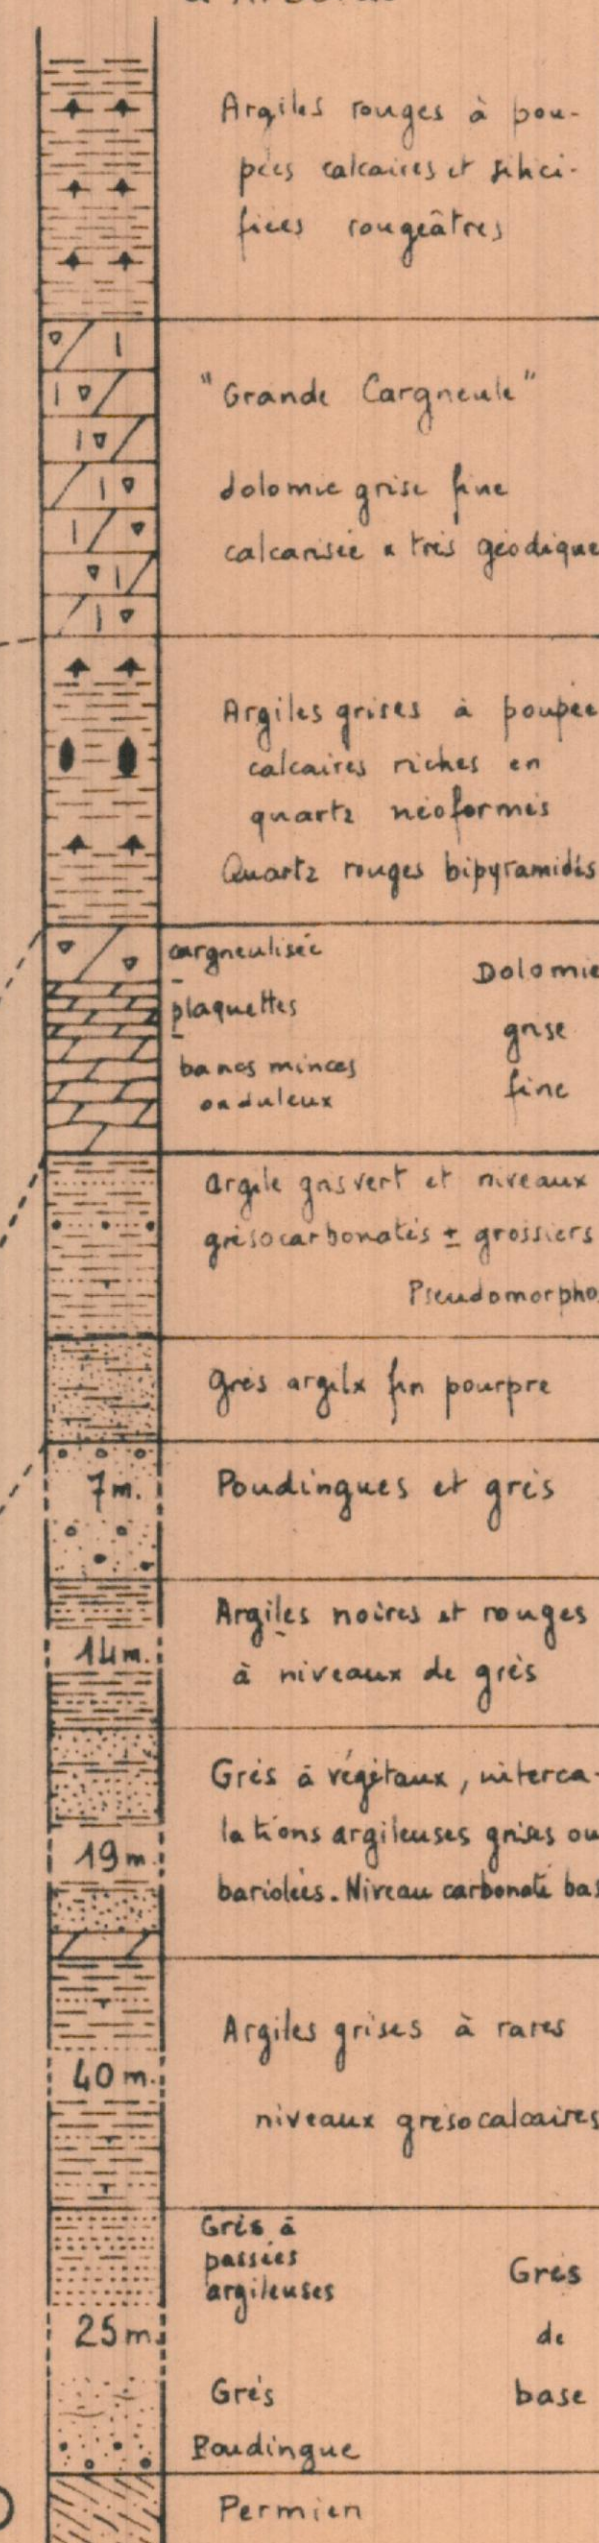 Argiles rouges à pou-
pées calcaires et silici-
fiées rougeâtres
"Grande Cargneule"
dolomie grise fine
calcarisée très géodique
Argiles grises à poupée
calcaires riches en
quartz néoformés
Quartz rouges bipyramidés
cargneulisée
plaquettes
bancs minces
onduleux
Dolomie
grise
fine
argile gris vert et niveaux
grésocarbonatés ± grossiers
Pseudomorpho
Grés argilx fin pourpre
7m.
Poudingues et grès
Argiles noires et rouges
à niveaux de grès
14m.
Grés à végétaux, interca-
lations argileuses grises ou
bariolées. Niveau carbonaté bas
19m.
Argiles grises à rares
niveaux grésocalcaires
40m.
Grés à
passées
argileuses
25m.
Grés
de
base
Grés
Poudingue
Permien